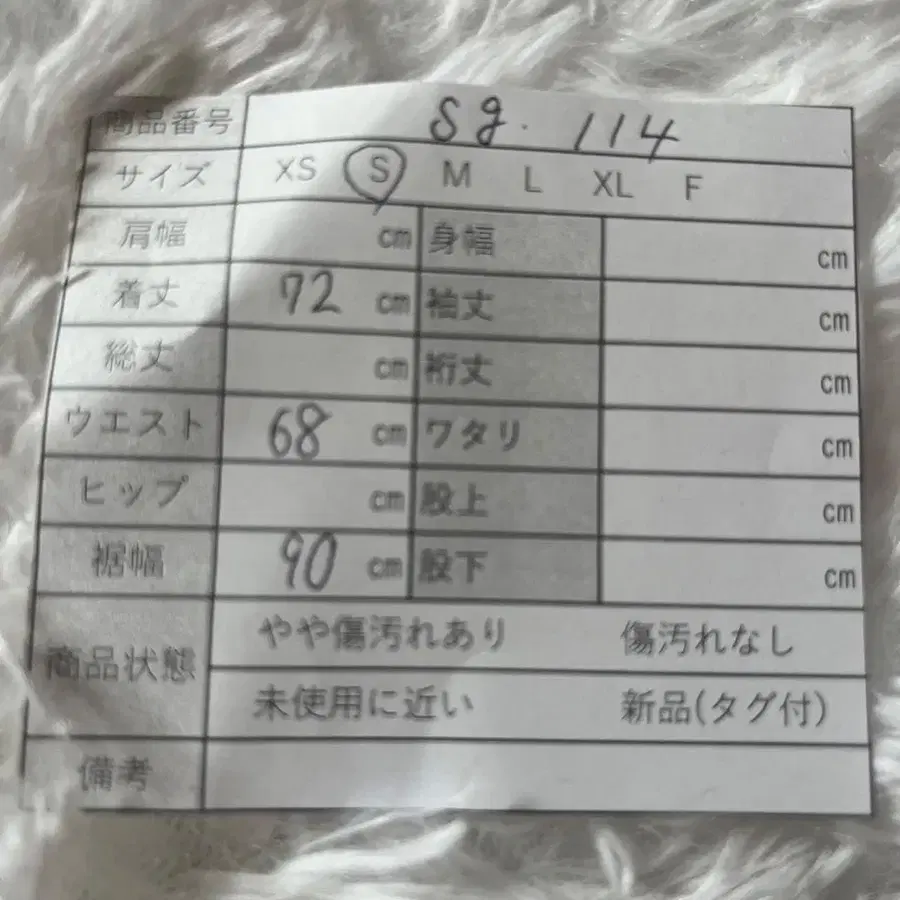 商品番号 Sg. 114
サイズ XS S M L XL F
肩幅 cm 身幅 cm
着丈 72 cm 袖丈 cm
総丈 cm 裄丈 cm
ウエスト 68 cm ワタリ cm
ヒップ cm 股上 cm
裾幅 90 cm 股下 cm
商品状態 やや傷汚れあり 傷汚れなし
未使用に近い 新品(タグ付)
備考